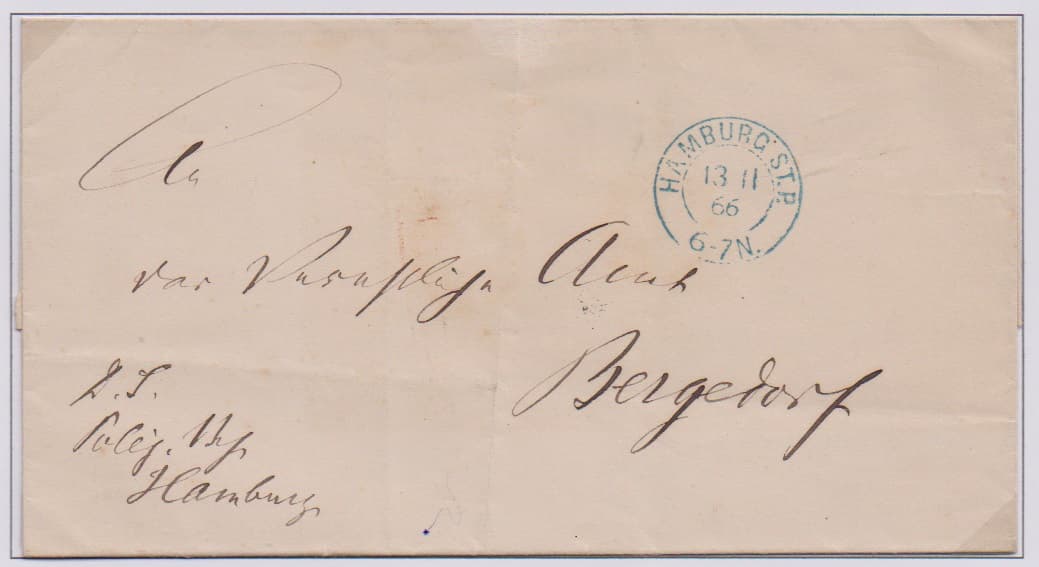 An
HAMBURG ST.P.
13 11
66
6-7N.
das Amt
Bergedorf
D. S.
Hamburg